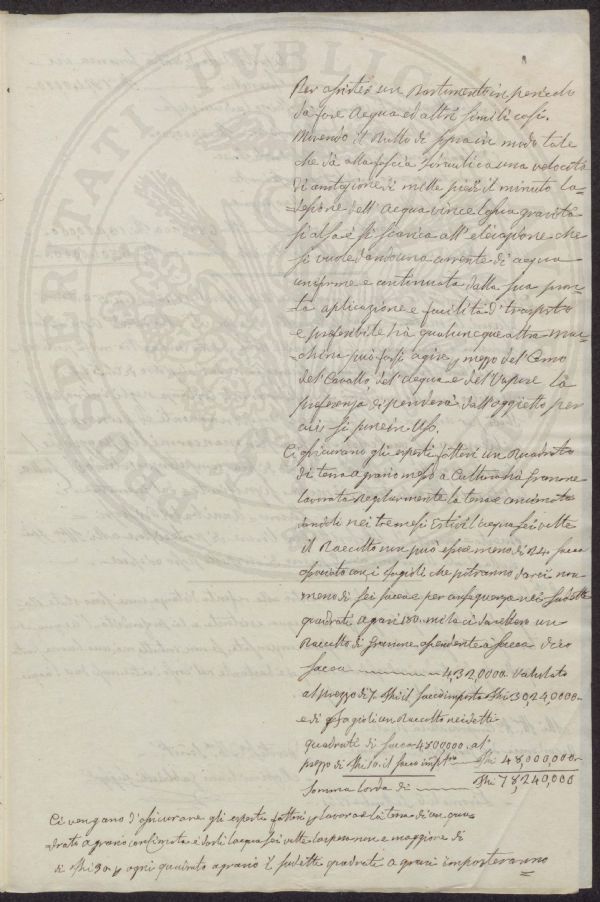 Per assister un Bastimento in pericolo
da fare Acqua ed altri simili casi.
Movendo il Rullo di sopra in modo tale
che da alla fascia Idraulica una velocità
di amotazione di mille piedi il minuto la
desione dell' acqua vince la sua gravità
si alsa e si scarica all' elevazione che
si vuole dando una corrente di acqua
uniforme e continuata dalla sua pron=
ta aplicazione e facilità d' trasporto
e preferibile frà qualunque altra Mac=
china può farsi agire p mezzo del' Omo
del' Cavallo, del' acqua e del' Vapore la
preferenza dipenderà dall' oggietto per
cui si pone in Uso.
Ci assicurano gli esperti fattori un Quadrato
di terra agrario messo a Cultura frà Granone
lavorata Regolarmente la terra e concimata
dandoli nei tre mesi Estivi l'acqua sei volte
il Raccolto non può essere meno di R24 sacca
associato con i fagioli che potranno darci non
meno di sei sacca e per consequenza nei sudetti
quadrati agrari 180 mila ci darebbero un
Raccolto di Granone ascendente a sacca dico
sacca 4,32,0000. valutato
al prezzo di 7 Shi il sacco importa Shi 30,24,0000
e di fagioli un Raccolto nei detti
quadrati di sacca 4800000. al'
prezo di Shi 10. il sacco imp Shi 48,000,000
Somma lorda di Shi 78,240,000
Ci vengano d'assicurare gli esperti fattori p lavorare la terra di un qua
drato agrario concimata e darli l'acqua sei volte la spesa non e maggiore di
di Shi 30 p ogni quadrato agrario li sudette quadrate agrari importeranno